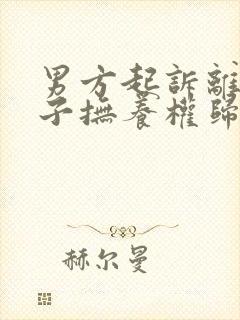 男方起訴離
子撫養權歸
赫尔曼